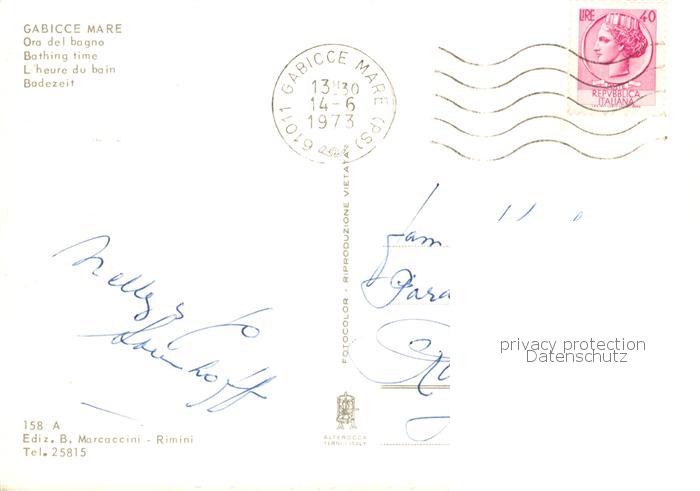 GABICCE MARE
Ora del bagno
Bathing time
L'heure du bain
Badezeit
61011 GABICCE MARE (PS)
13H30
14-6
1973
LIRE 40
REPVBBLICA
ITALIANA
FOTOCOLOR - RIPRODUZIONE VIETATA
Fam
privacy protection
Datenschutz
158 A
Ediz. B. Marcaccini - Rimini
Tel. 25815
ALTEROCCA
TERNI - ITALY